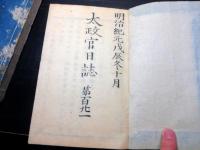 明治紀元戊辰冬十月
太政官日誌
第百九一